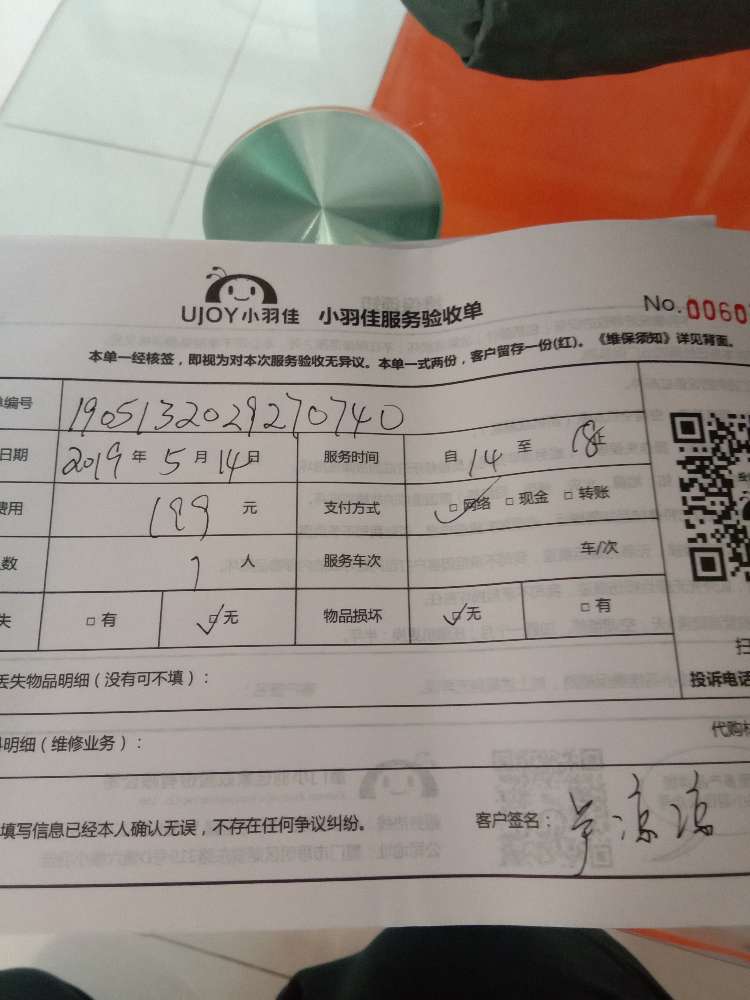 UJOY小羽佳 小羽佳服务验收单 No.0060
本单一经核签，即视为对本次服务验收无异议。本单一式两份，客户留存一份(红)。《维保须知》详见背面。
单编号 1905132029270740
日期 2019年5月14日 服务时间 自14至18止
费用 199元 支付方式 □网络 □现金 □转账
数 1人 服务车次 车/次
失 □有 □无 物品损坏 □无 □有
扫
丢失物品明细（没有可不填）： 投诉电话
明细（维修业务）： 代购
填写信息已经本人确认无误，不存在任何争议纠纷。 客户签名： 凉凉